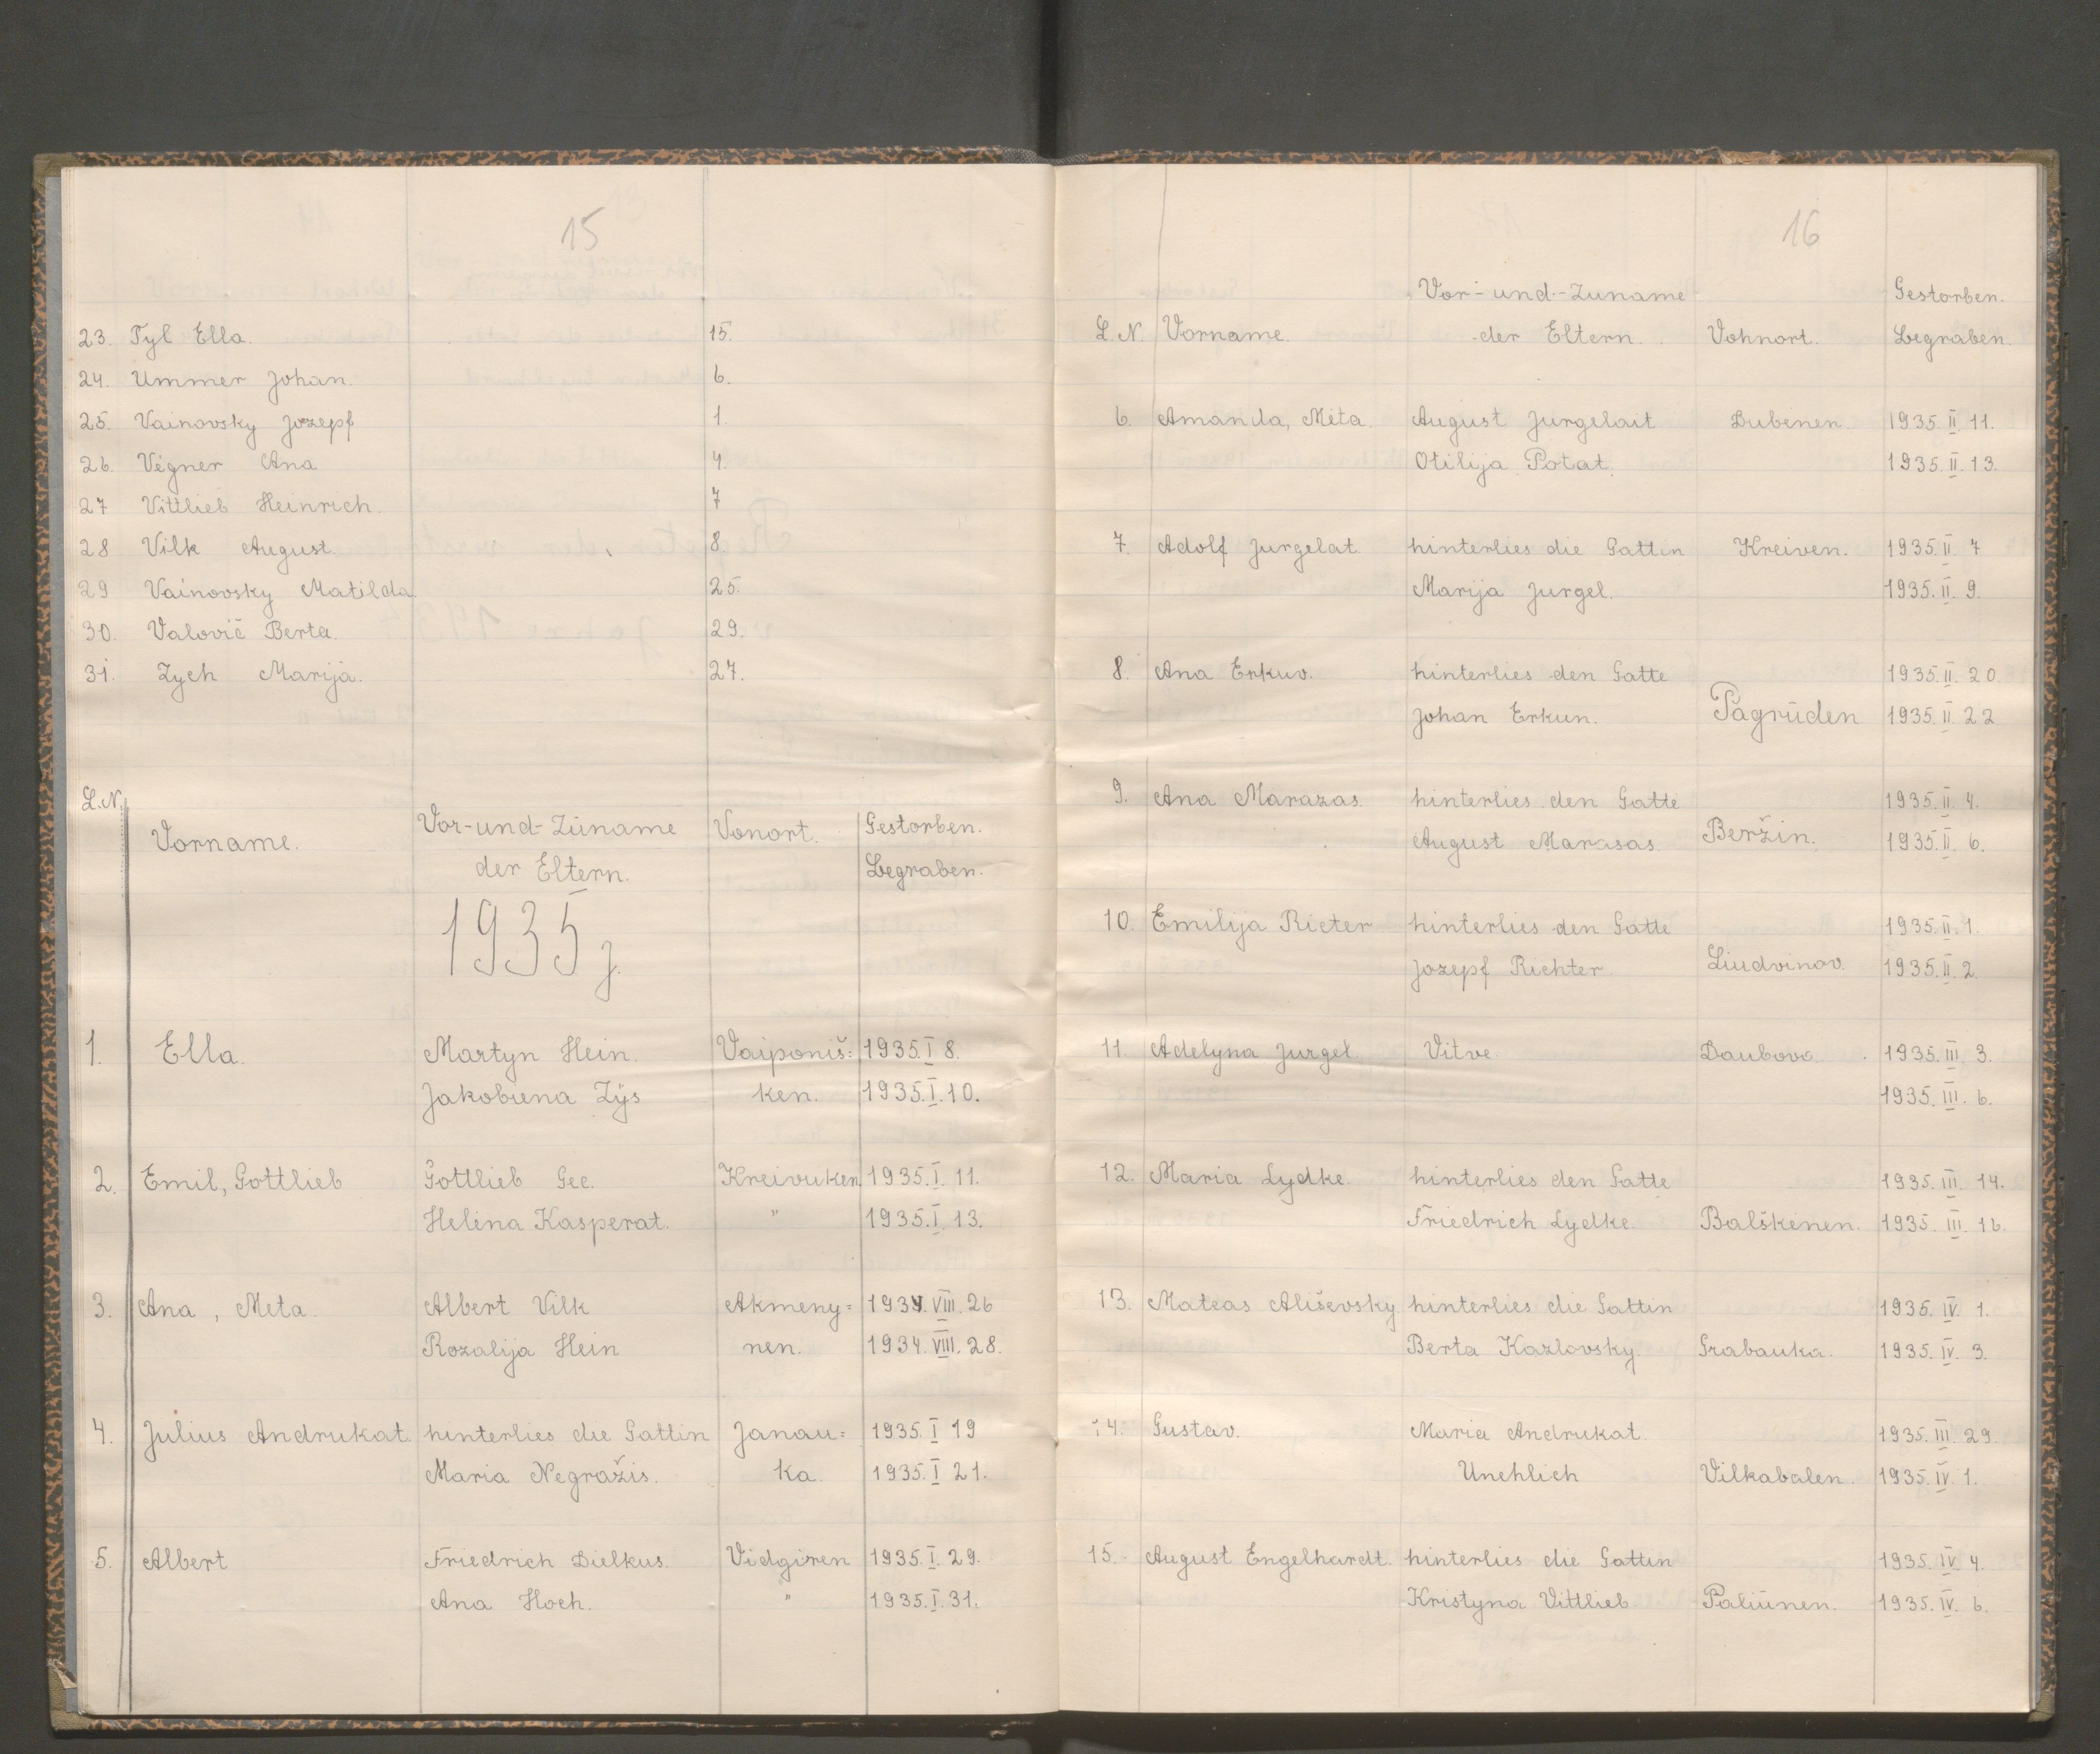 15
23. Tyl Ella. 15.
24. Ummer Johan. 6.
25. Vainovsky Jozepf 1.
26. Vėgner Ana 4.
27 Vittlieb Heinrich. 7
28 Vilk August. 8.
29 Vainovsky Matilda. 25.
30. Valovič Berta. 29.
31. Zych Marija. 27.
L.N. Vorname. Vor-und-Züname Vonort. Gestorben.
der Eltern. Begraben.
1935 j.
1. Ella. Martyn Hein. Vaiponiš= 1935.I 8.
Jakobiena Zys ken. 1935.I.10.
2. Emil, Gottlieb Gottlieb Gee. Kreivuken 1935.I. 11.
Helena Kasperat. " 1935.I. 13.
3. Ana, Meta. Albert Vilk Akmeny= 1934. VIII. 26
Rozalija Hein nen. 1934. VIII. 28.
4. Julius Andrukat. hinterlies die Gattin Janau= 1935. I 19
Maria Negražis. ka. 1935. I 21.
5. Albert Friedrich Dielkus. Vidgiren 1935. I. 29.
Ana Hoch. " 1935. I. 31.
16
Vor-und-Zuname Gestorben.
L.N. Vorname. der Eltern. Vohnort. Begraben.
6. Amanda, Meta. August Jurgelait Dubenen. 1935. II 11.
Otilija Potat. 1935. II. 13.
7. Adolf Jurgelat. hinterlies die Gattin Kreiven. 1935. II. 7
Marija Jurgel. 1935. II. 9.
8. Ana Erkuv. hinterlies den Gatte 1935. II. 20.
Johan Erkun. Pagrüden 1935. II. 22
9. Ana Marazas. hinterlies den Gatte 1935. II. 4.
August Marasas. Beržin. 1935. II. 6.
10. Emilija Rieter hinterlies den Gatte 1935. II. 1.
Jozepf Richter. Liudvinov. 1935. II. 2.
11. Adelyna Jurgel. Vitve. Daubovo. 1935. III. 3.
1935. III. 6.
12. Maria Lydke. hinterlies den Gatte 1935. III. 14.
Friedrich Lydke. Balškenen. 1935. III. 16.
13. Mateas Ališevsky hinterlies die Gattin 1935. IV. 1.
Berta Kazlovsky. Grabauka. 1935. IV. 3.
14. Gustav. Maria Andrukat. 1935. III. 29.
Unehlich Vilkabalen. 1935. IV. 1.
15. August Engelhardt. hinterlies die Gattin 1935. IV 4.
Kristyna Vittlieb. Paliünen. 1935. IV. 6.